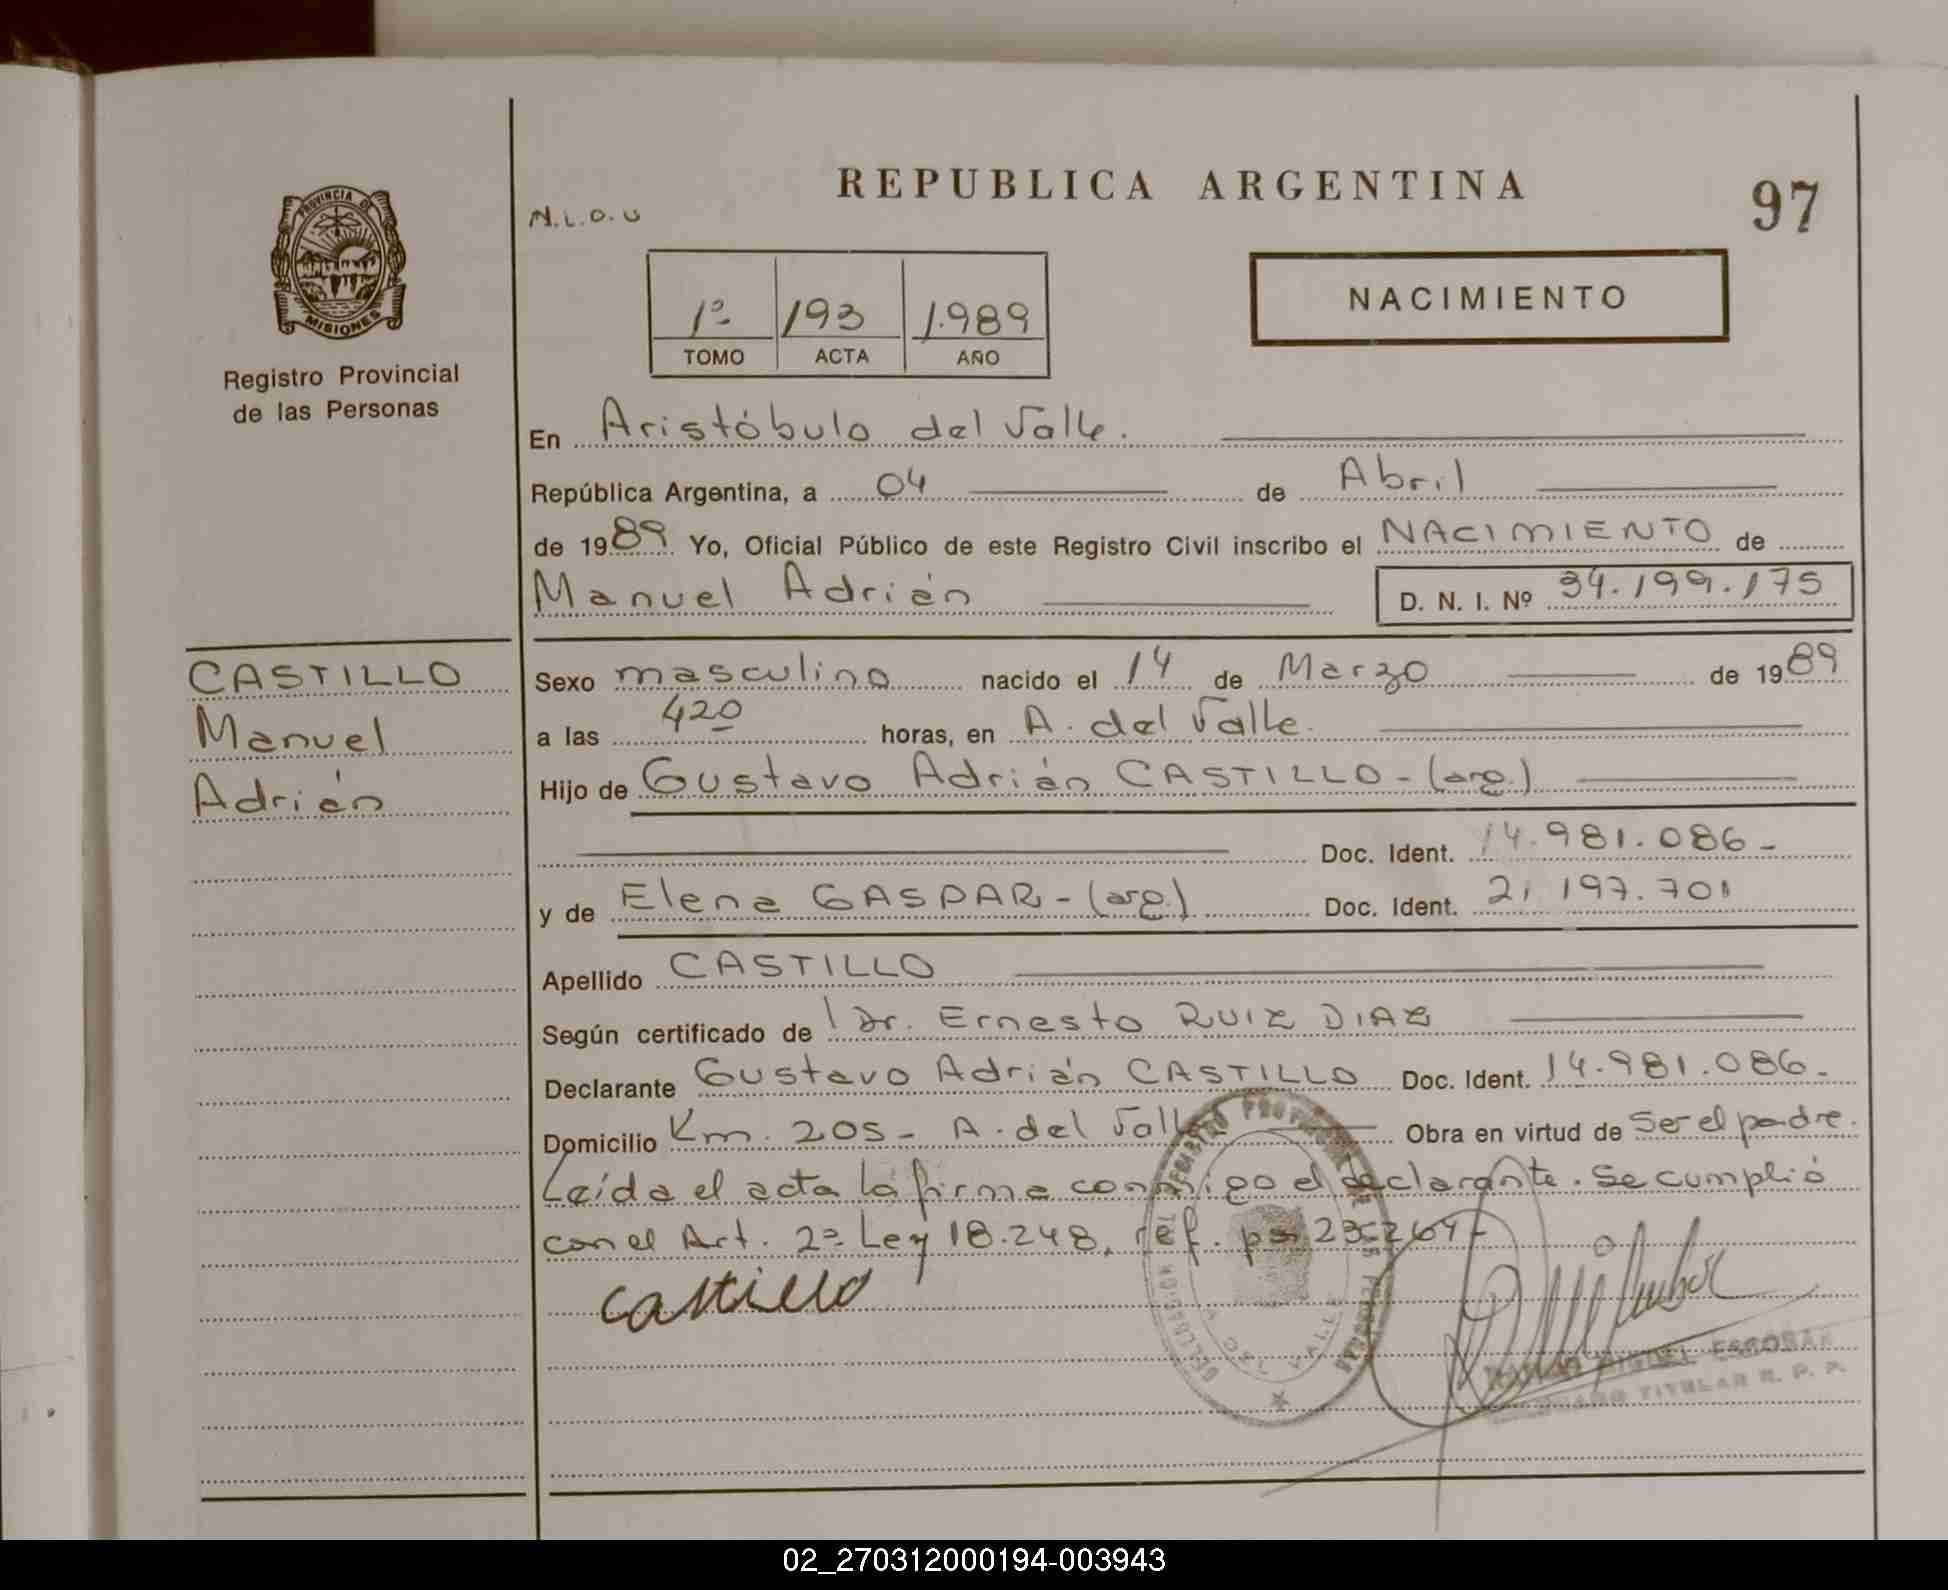 REPUBLICA ARGENTINA
97
N.L.O.U
PROVINCIA DE
MISIONES
Registro Provincial
de las Personas
1º 193 1.989
TOMO ACTA AÑO
NACIMIENTO
En Aristóbulo del Valle.
República Argentina, a 04 de Abril
de 1989 Yo, Oficial Público de este Registro Civil inscribo el NACIMIENTO de
Manuel Adrián D. N. I. Nº 34.199.175
CASTILLO
Manuel
Adrián
Sexo masculino nacido el 14 de Marzo de 1989
a las 420 horas, en A. del Valle.
Hijo de Gustavo Adrián CASTILLO - (arg.)
Doc. Ident. 14.981.086 -
y de Elena GASPAR - (arg.) Doc. Ident. 21.197.701
Apellido CASTILLO
Según certificado de Dr. Ernesto RUIZ DIAZ
Declarante Gustavo Adrián CASTILLO Doc. Ident. 14.981.086.-
Domicilio Km. 205 - A. del Valle Obra en virtud de ser el padre.
Leída el acta la firma conmigo el declarante. Se cumplió
con el Art. 2º Ley 18.248, ref. por 23.264-
Castillo
REGISTRO PROVINCIAL DE LAS PERSONAS
A. DEL VALLE
MIGUEL ESCOBAR
TITULAR R. P. P.
02_270312000194-003943